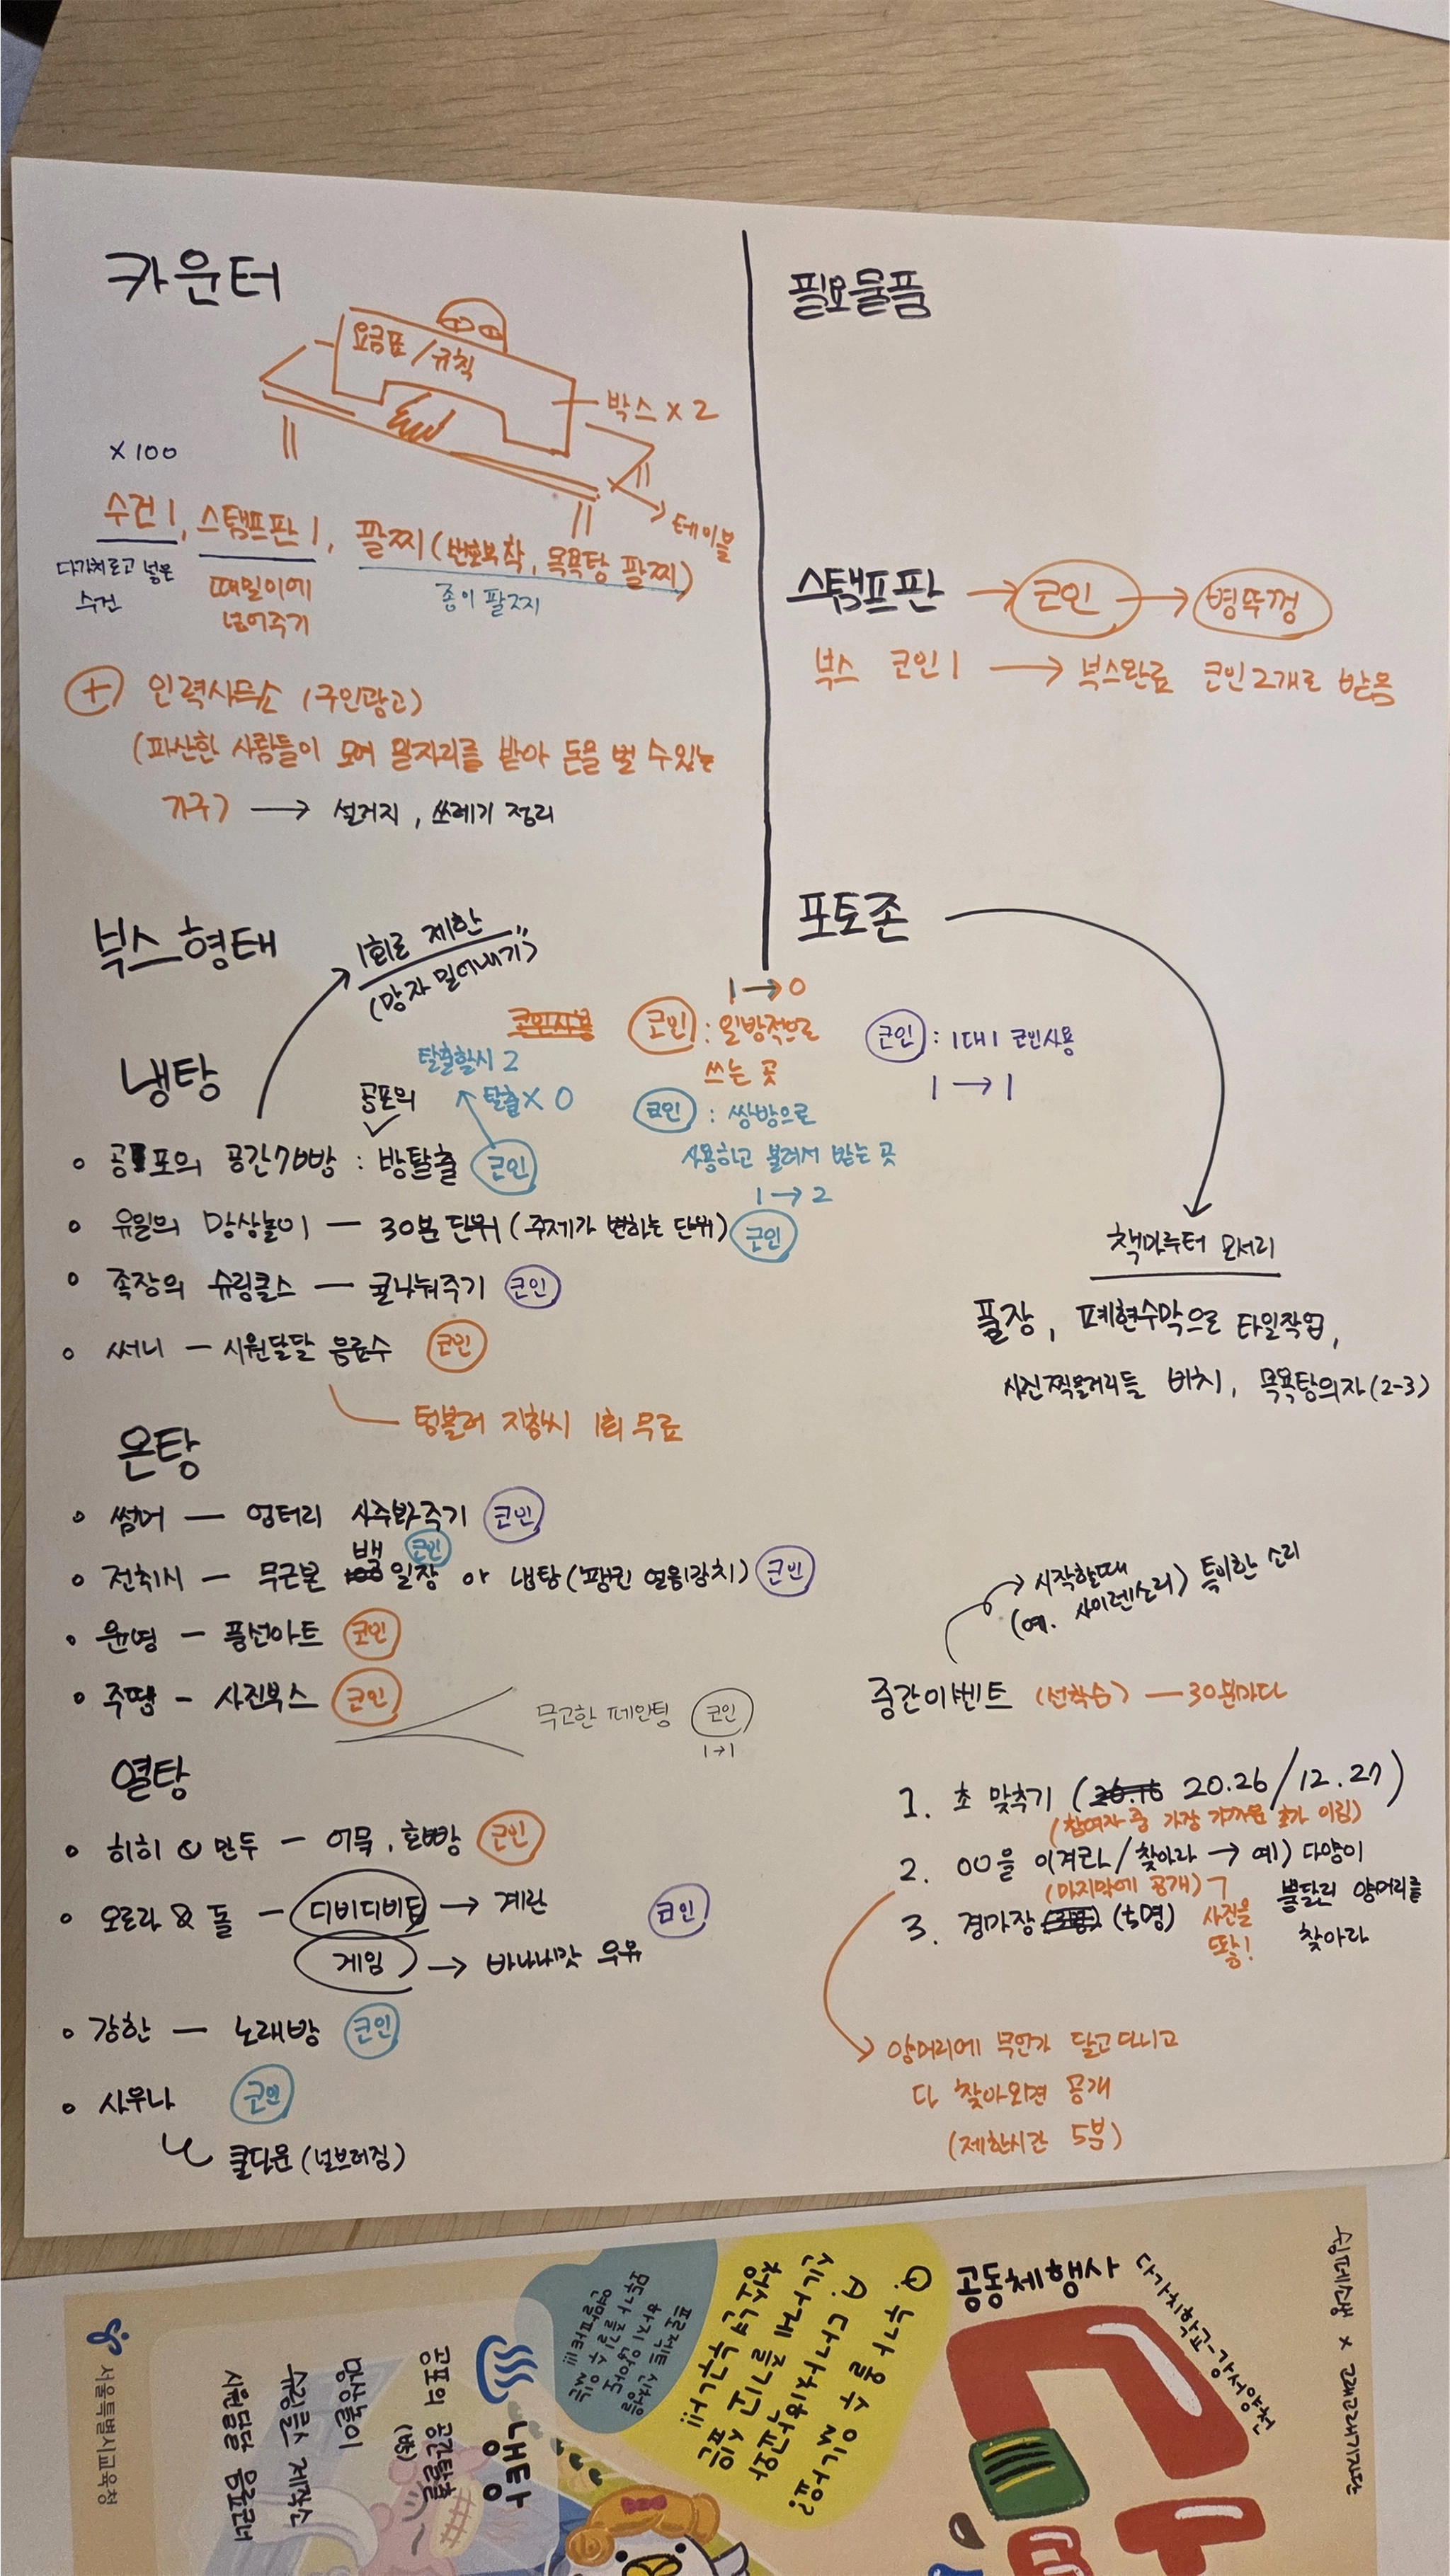 카운터
요금표/규칙
박스 x 2
테이블
x100
수건1, 스탬프판1, 팔찌(번호부착, 목욕탕 팔찌)
다가치로고 넣은
수건
때밀이에
넣어주기
종이 팔찌
+ 인력사무소 (구인광고)
(파산한 사람들이 모여 일자리를 받아 돈을 벌 수 있는
→ 설거지, 쓰레기 정리
필요물품
스탬프판 → 코인 → 병뚜껑
부스 코인1 → 부스완료 코인2개로 받음
포토존
책마루터 모서리
풀장, 폐현수막으로 타일작업,
사진찍을거리들 배치, 목욕탕의자(2-3)
부스형태
1회로 제한
(망자 밀어내기)
1→0
코인 : 일방적으로
쓰는 곳
코인 : 쌍방으로
사용하고 불려서 받는 곳
1→2
코인 : 1대1 코인사용
1→1
냉탕
탈출할시 2
탈출 X 0
공포의
• 공포의 공간 : 방탈출 코인
• 유밀의 망상놀이 — 30분 단위 (주제가 변하는 단위) 코인
• 족장의 슈링클스 — 귤나눠주기 코인
• 써니 — 시원달달 음료수 코인
텀블러 지참시 1회 무료
온탕
• 썸머 — 엉터리 사주봐주기 코인
백 코인
• 전취시 — 무근본 일장 or 냉탕 코인
• 윤영 — 풍선아트 코인
• 주땡 — 사진부스 코인
무고한 페인팅 코인
1→1
열탕
• 히히 & 만두 — 어묵, 호빵 코인
• 오로라 & 돌 — 디비디비딥 → 계란 코인
게임 → 바나나맛 우유
• 강한 — 노래방 코인
• 사우나 코인
쿨다운 (널브러짐)
시작할때 특이한 소리
(예. 사이렌소리)
중간이벤트 (선착순) — 30분마다
1. 초 맞추기 (20.26/12.27)
(참여자 중 가장 가까운 초가 이김)
2. 00을 이겨라/찾아라 → 예) 다양이
(마지막에 공개) 뿔달린 양머리를
찾아라
3. 경마장 (5명)
사진을
딱!
양머리에 무언가 달고다니고
다 찾아오면 공개
(제한시간 5분)
공동체행사
다가치학교-강서양천
Q. 누가 올 수 있나요?
A. 다가치학교와
신나게 즐기고 싶은
청소년 누구나!!!
프로젝트 신청을
하지 않아도
모두가 즐길 수 있는
열람파티!!!
냉탕
공포의 공간탈출
(방)
망상놀이
슈링클스 제작소
시원달달 음료코너
서울특별시교육청